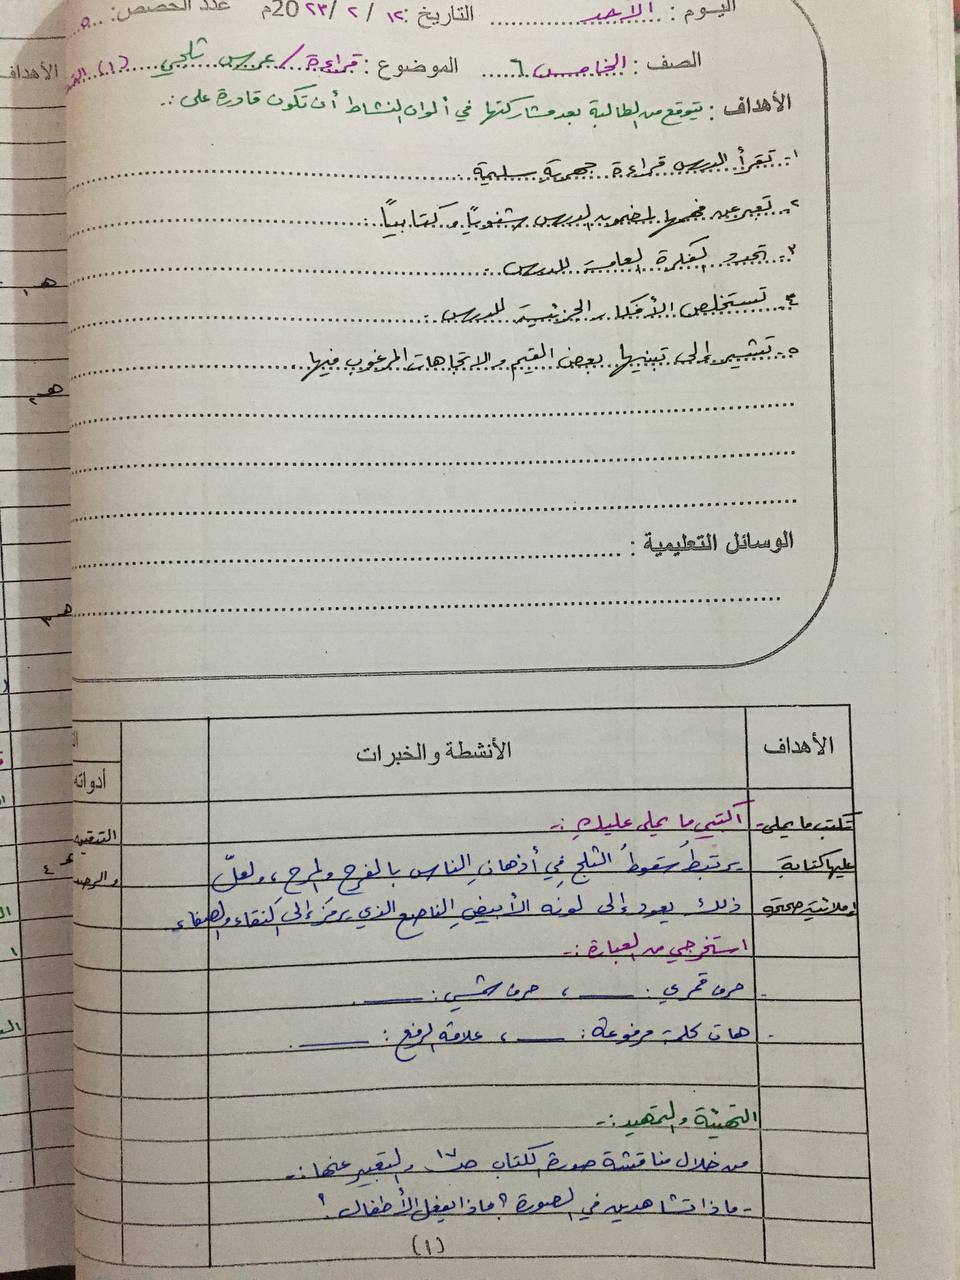 اليوم : الأحد التاريخ : ١٢ / ٢ / ٢٠٢٣م عدد الحصص:
الصف : الخامس ٦ الموضوع : قراءة / عرس ثلجي (١)
الأهداف : يتوقع من الطالبة بعد مشاركتها في ألوان النشاط أن تكون قادرة على :-
١- تقرأ الدرس قراءة جهرية سليمة .
٢- تعبر عن فهمها لمضمون الدرس شفوياً وكتابياً .
٣- تحدد الفكرة العامة للدرس .
٤- تستخلص الأفكار الجزئية للدرس .
٥- تشير إلى تبنيها بعض القيم والاتجاهات المرغوب فيها .
الوسائل التعليمية :
الأهداف الأنشطة والخبرات
أدواته
تكتب ما يملى - اكتبي ما يملى عليك :-
عليها كتابة يرتبط سقوطُ الثلج في أذهان الناس بالفرح والمرح ، ولعلّ
إملائية صحيحة ذلك يعود إلى لونه الأبيض الناصع الذي يرمز إلى النقاء والصفاء
استخرجي من العبارة :-
- حرف قمري : ____ ، حرف شمسي : ____ .
- هات كلمة مرفوعة : ____ ، علامة الرفع : ____ .
التهيئة والتمهيد :-
من خلال مناقشة صورة الكتاب ص١٧ والتعبير عنها :-
- ماذا تشاهدين في الصورة ؟ ماذا يفعل الأطفال ؟
(١)